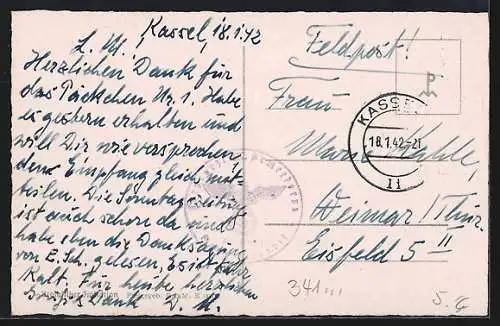 Kassel, 18.1.42
L. M.
Herzlichen Dank für
das Päckchen Nr. 1. Habe
es gestern erhalten und
will Dir wie versprochen,
den Empfang gleich mit-
teilen. Die Sonntagszeitung
ist auch schon da und
habe eben die Danksagung
von E. Sch. gelesen, Es ist sehr
Kalt. Für heute herzlichen
Gruß Dank V. M.
Feldpost!
Frau
Marie Kahle,
Weimar / Thür.
Eisfeld 5 II
KASSEL
18.1.42.-21
11
341
5.